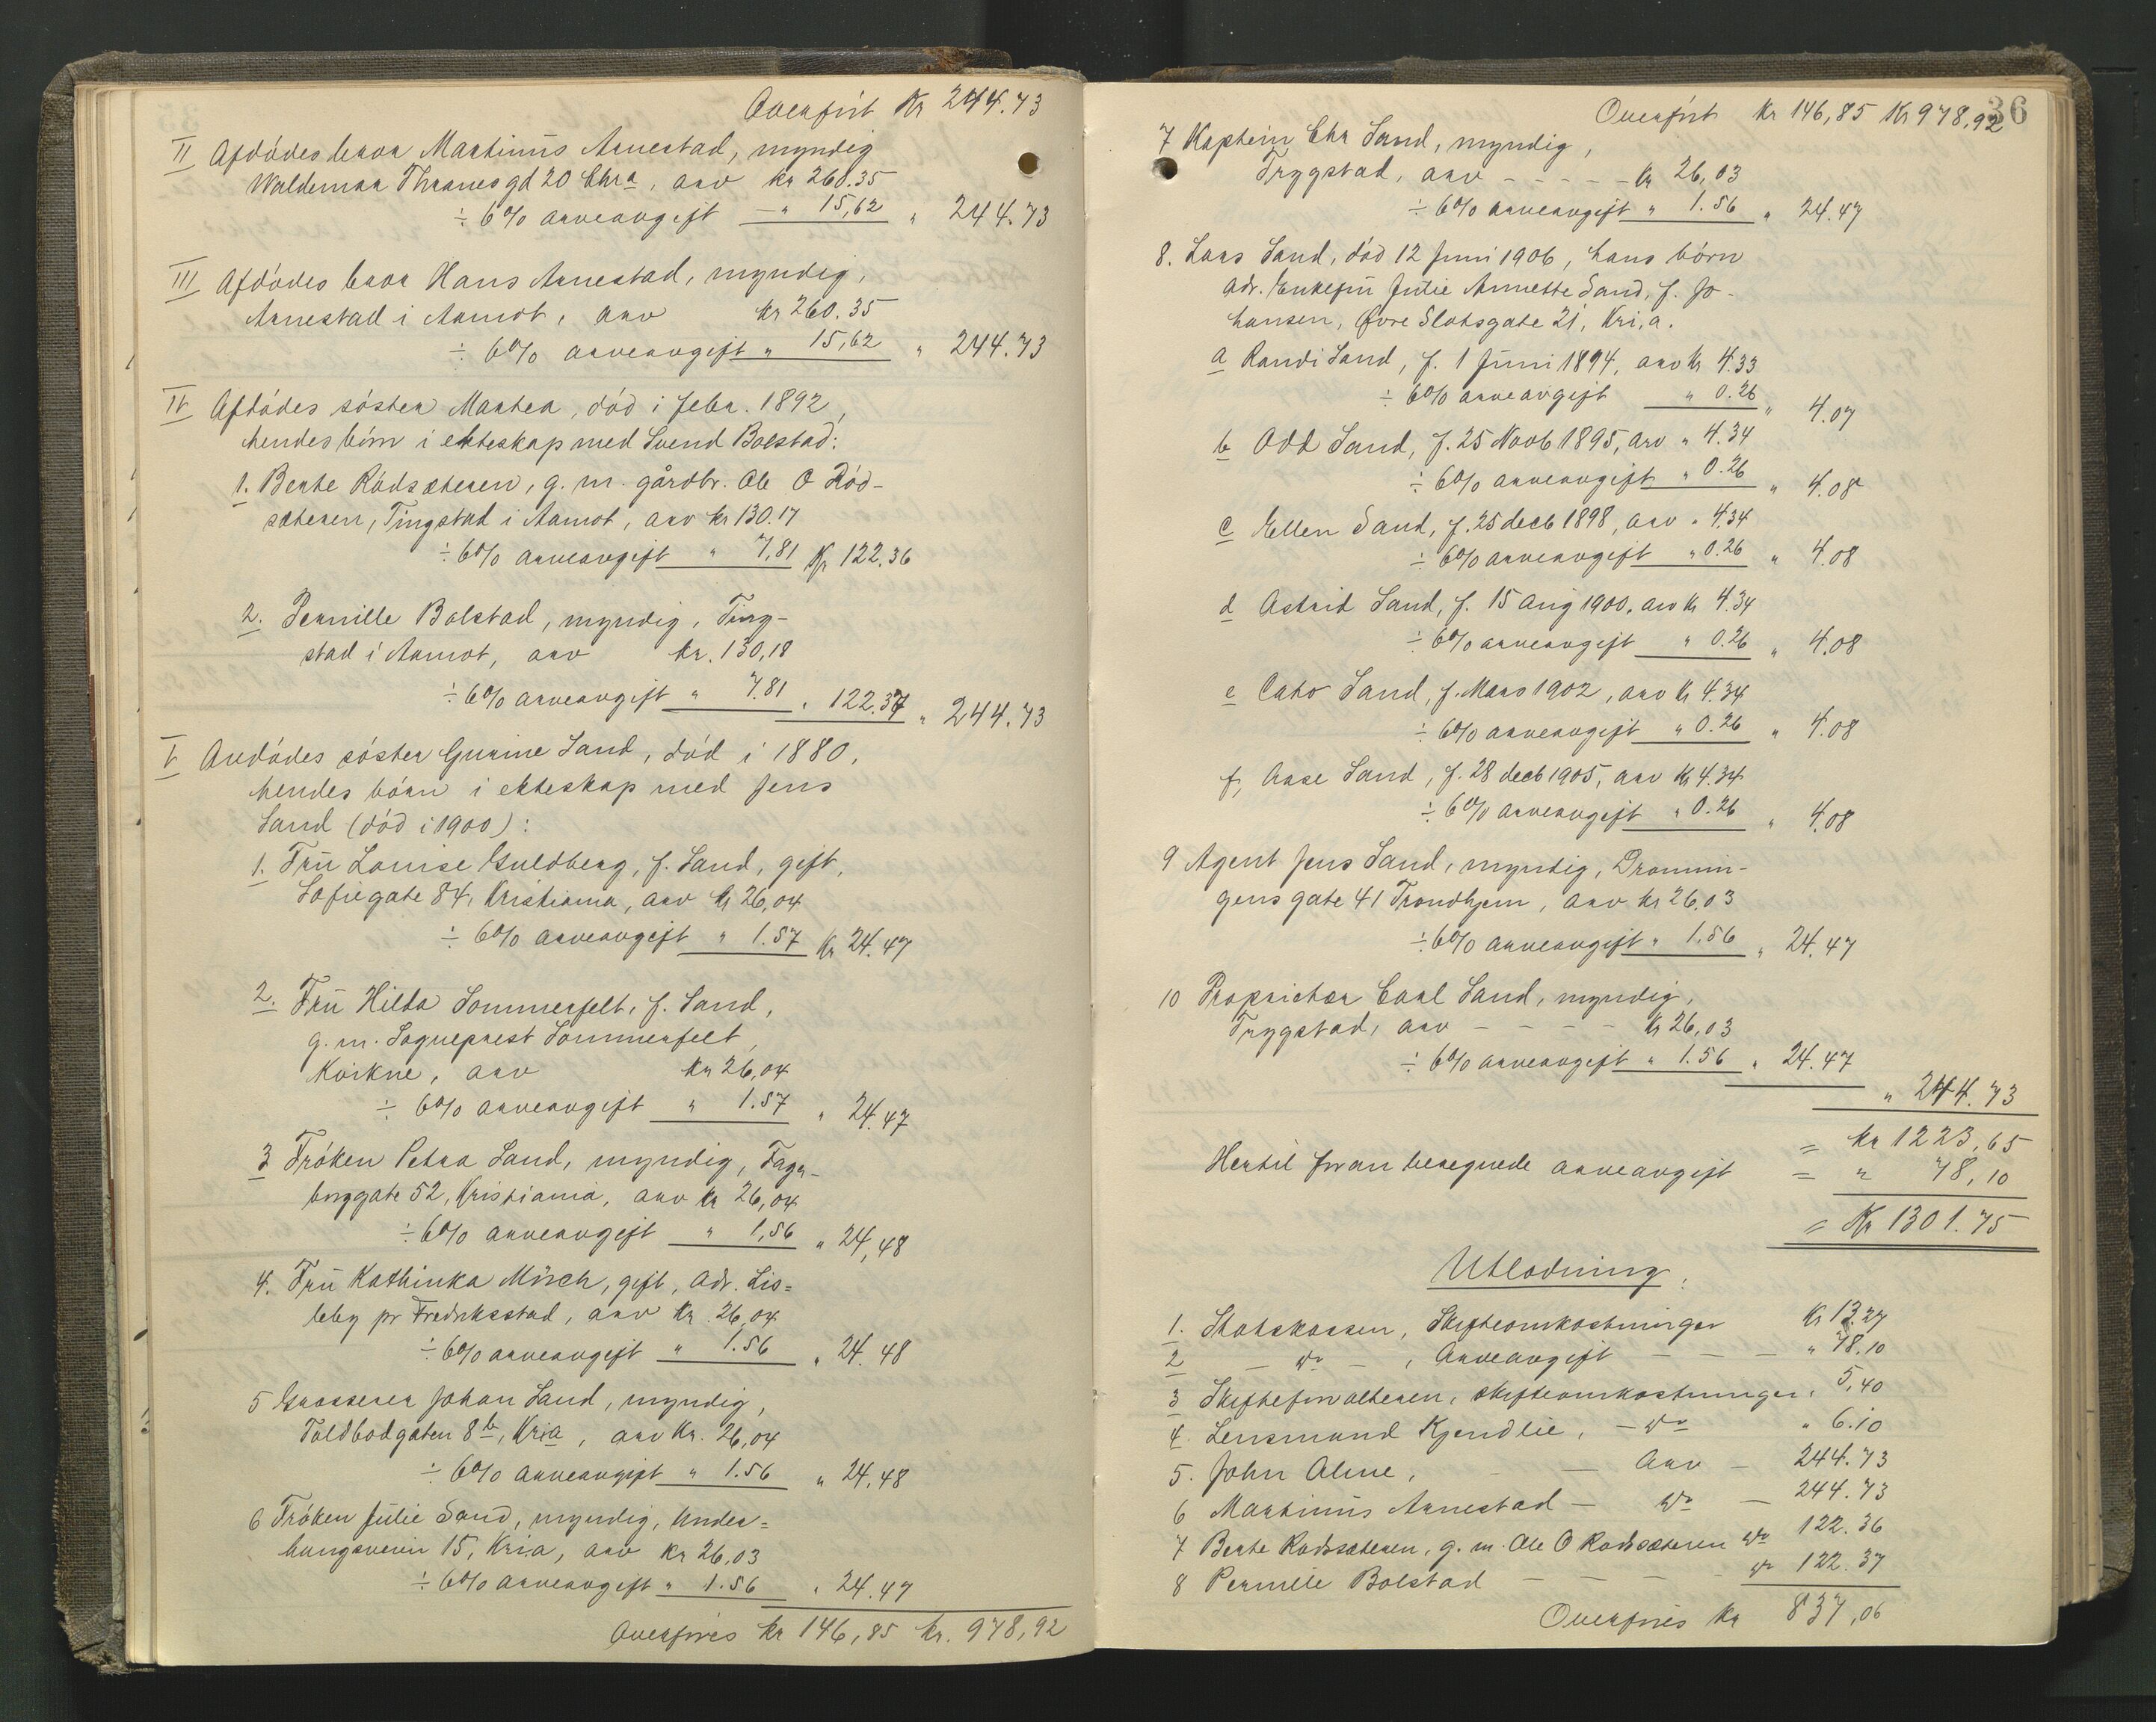 Overført Kr 244.73
II Afdödes bror Martinus Arnestad, myndig
Waldemar Thranesgd 20 Chra, arv kr 260.35
÷ 6% arveavgift — " 15,62 " 244.73
III Afdödes bror Hans Arnestad, myndig,
Arnestad i Aamot, arv kr 260.35
÷ 6% arveavgift " 15,62 " 244.73
IV Afdödes söster Marthea, död i febr. 1892,
hendes börn i ekteskap med Svend Bolstad:
1. Berte Rödsæteren, g. m. gårdbr. Ole O Röd-
sæteren, Tingstad i Aamot, arv kr 130.17
÷ 6% arveavgift " 7,81 Kr 122.36
2. Pernille Bolstad, myndig, Ting-
stad i Aamot, arv kr. 130,18
÷ 6% arveavgift " 7.81 " 122.37 " 244.73
V Avdödes söster Gurine Sand, död i 1880,
hendes börn i ekteskap med Jens
Sand (död i 1900):
1. Fru Louise Guldberg, f. Sand, gift,
Sofiegate 84, Kristiania, arv kr 26,04
÷ 6% arveavgift " 1.57 Kr 24.47
2. Fru Hilda Sommerfelt, f. Sand,
g. m. Sogneprest Sommerfelt,
Kvikne, arv kr 26,04
÷ 6% arveavgift " 1.57 " 24.47
3 Fröken Petra Sand, myndig, Fagr-
borggate 52, Kristiania, arv kr 26,04
÷ 6% arveavgift " 1,56 " 24,48
4. Fru Kathinka Mörch, gift, adr. Lis=
leby pr Fredriksstad, arv Kr. 26,04
÷ 6% arveavgift " 1.56 " 24.48
5 Grosserer Johan Sand, myndig,
Toldbodgaten 8b, Kria, arv Kr. 26,04
÷ 6% arveavgift " 1.56 " 24,48
6 Fröken Julie Sand, myndig, Under=
haugsveien 15, Kria, arv kr 26,03
÷ 6% arveavgift " 1.56 " 24.47
Overföres kr 146,85 kr. 978,92
36
Overført kr 146,85 Kr 978,92
7 Kaptein Chr Sand, myndig,
Trygstad, arv - - - - - kr 26,03
÷ 6% arveavgift " 1.56 " 24.47
8. Lars Sand, död 12 Juni 1906, hans börn
adr. Enkefru Julie Annette Sand, f. Jo-
hansen, Övre Slotsgate 21, Kria.
a Randi Sand, f. 1 Juni 1894, arv kr 4.33
÷ 6% arveavgift " 0.26 " 4.07
b Odd Sand, f. 25 Novb 1895, arv " 4.34
÷ 6% arveavgift " 0.26 " 4.08
c Ellen Sand, f. 25 decb 1898, arv " 4.34
÷ 6% arveavgift " 0.26 " 4.08
d Astrid Sand, f. 15 aug 1900, arv kr 4.34
÷ 6% arveavgift " 0.26 " 4.08
e Cato Sand, f. Mars 1902, arv kr 4.34
÷ 6% arveavgift " 0.26 " 4.08
f, Aase Sand, f. 28 decb 1905, arv kr 4.34
÷ 6% arveavgift " 0.26 " 4.08
9 Agent Jens Sand, myndig, Dronnin-
gens gate 41 Trondhjem, arv kr 26,03
÷ 6% arveavgift " 1,56 " 24.47
10 Proprietær Carl Sand, myndig,
Trygstad, arv - - - - kr 26,03
÷ 6% arveavgift " 1.56 " 24.47
" 244.73
= kr 1223,65
Hertil foran beregnede arveavgift = " 78,10
= Kr 1301.75
Utlodning.
1. Statskassen, Skifteomkostninger Kr 13.27
2 — do — , Arveavgift — — — " 78.10
3 Skifteforvalteren, skifteomkostninger, 5,40
4. Lensmand Kjendlie, — do " 6.10
5. John Alme, — Arv — 244.73
6 Martinus Arnestad — do — 244.73
7 Berte Rodssæteren, g. m. Ole O Rodsæteren do 122.36
8 Pernille Bolstad — — — do 122.37
Overföres kr 837,06